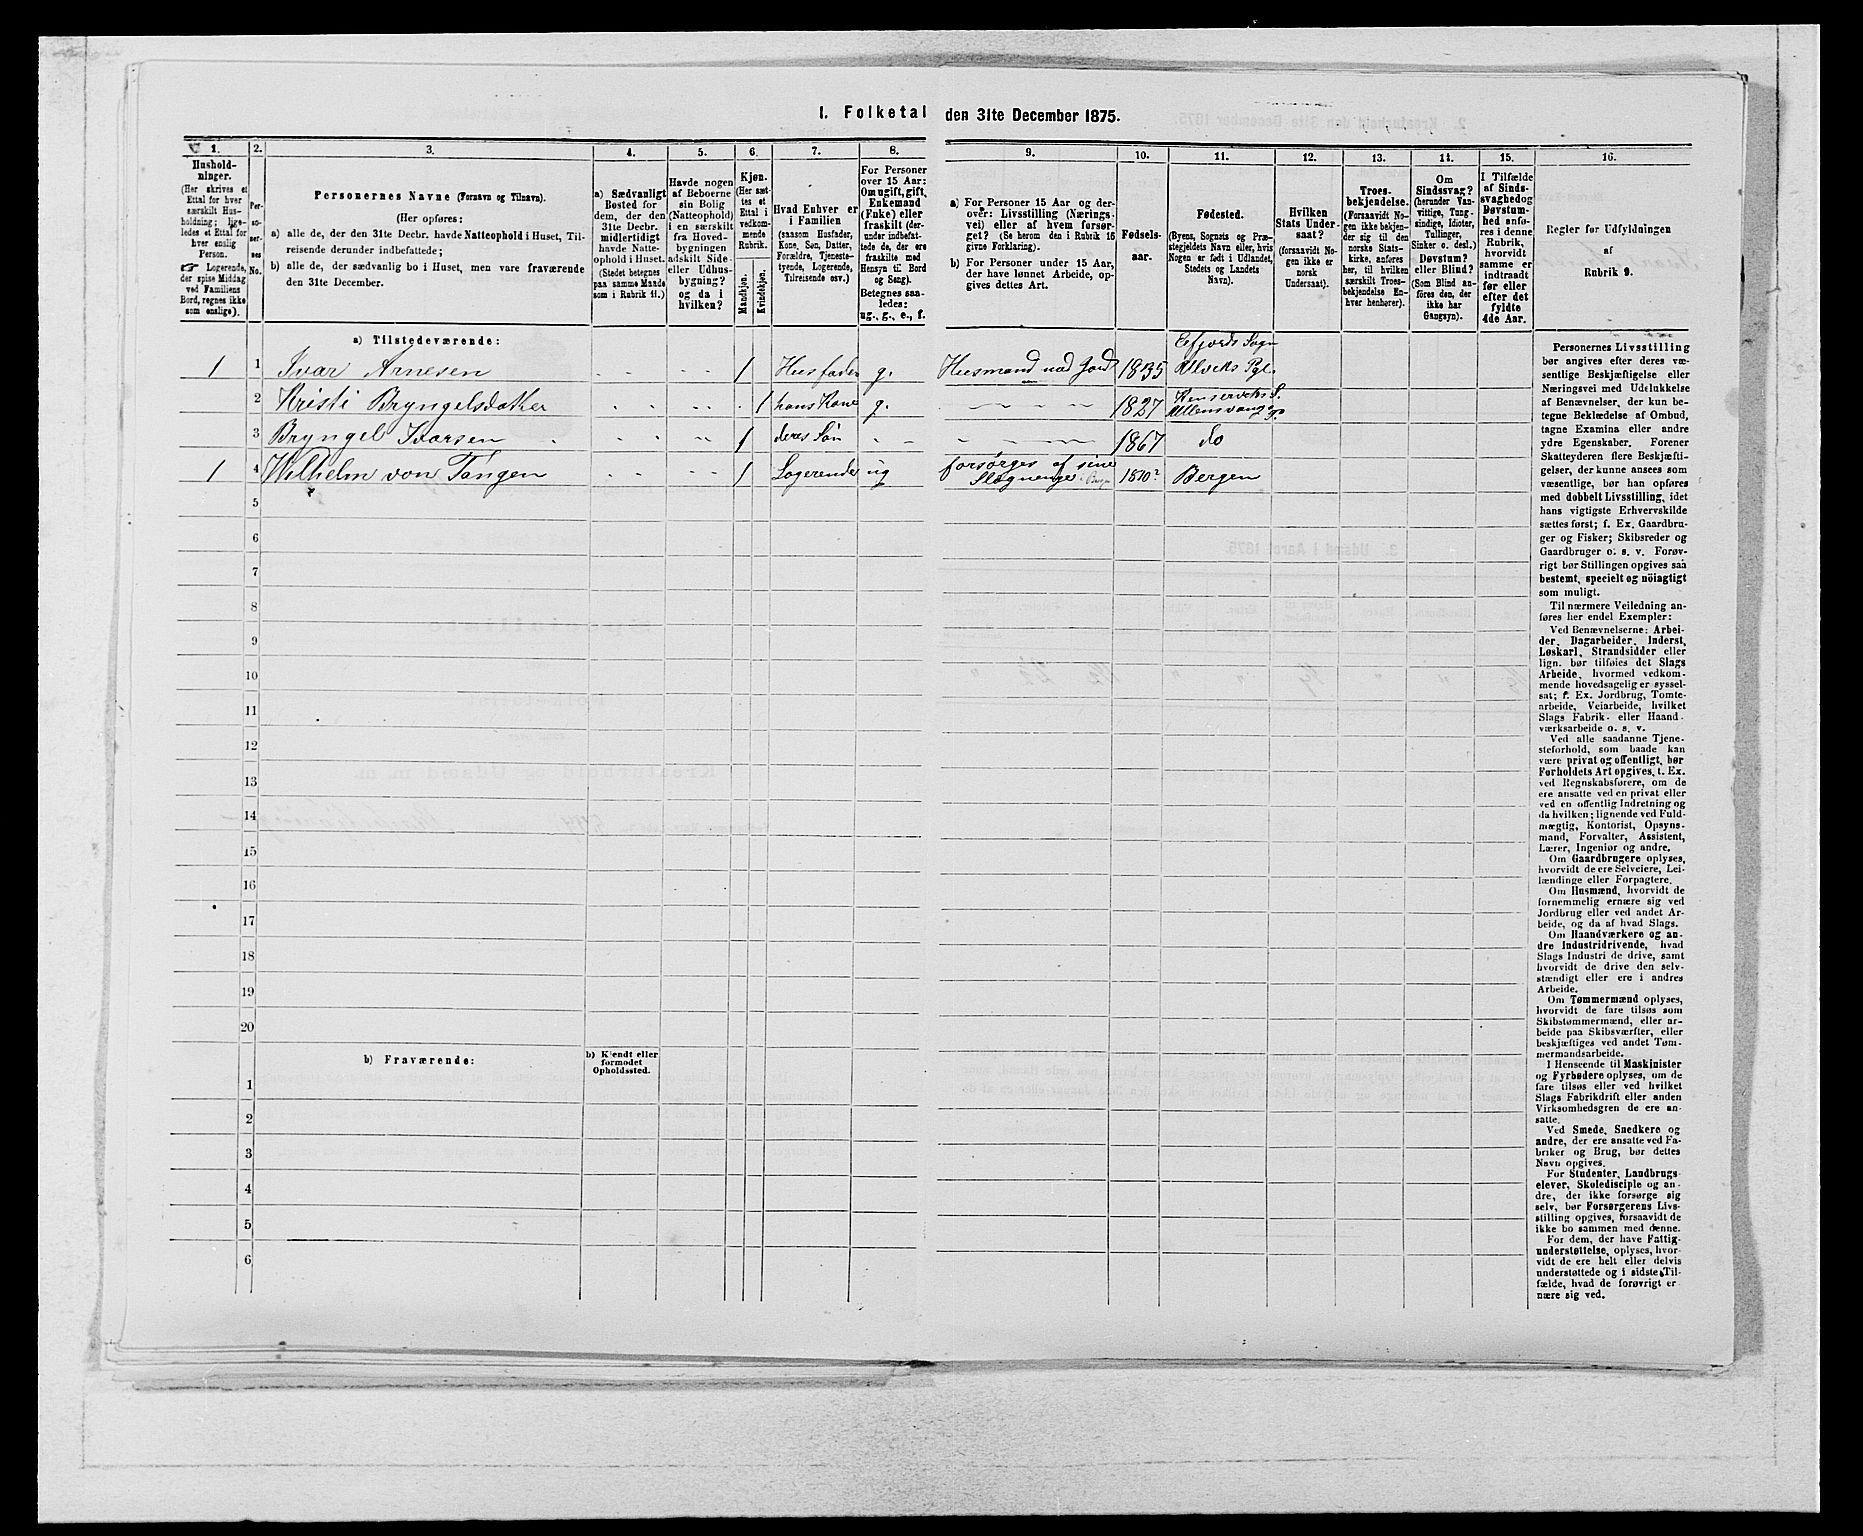 1. Folketal den 31te December 1875.
1.
Hushold-
ninger.
(Her skrives et
Ettal for hver
særskilt Hus-
holdning; lige-
ledes et Ettal for
hver enslig
Person.
☞ Logerende,
der spise Middag
ved Familiens
Bord, regnes ikke
som enslige).
2.
Per-
so-
ner-
nes
No.
3.
Personernes Navne (Fornavn og Tilnavn).
(Her opføres:
a) alle de, der den 31te Decbr. havde Natteophold i Huset, Til-
reisende derunder indbefattede;
b) alle de, der sædvanlig bo i Huset, men vare fraværende
den 31te December.
4.
a) Sædvanligt
Bosted for
dem, der den
31te Decbr.
midlertidigt
havde Natte-
ophold i Huset.
(Stedet betegnes
paa samme Maade
som i Rubrik 11.)
5.
Havde nogen
af Beboerne
sin Bolig
(Natteophold)
i en særskilt
fra Hoved-
bygningen
adskilt Side-
eller Udhus-
bygning?
og da i
hvilken?
6.
Kjøn.
(Her sæt-
tes et
Ettal i
vedkom-
mende
Rubrik.
Mandkjøn.
Kvindekjøn.
7.
Hvad Enhver er
i Familien
(saasom Husfader,
Kone, Søn, Datter,
Forældre, Tjeneste-
tyende, Logerende,
Tilreisende osv.)
8.
For Personer
over 15 Aar:
Om ugift, gift,
Enkemand
(Enke) eller
fraskilt (der-
under indbefat-
tede de, der ere
fraskilte med
Hensyn til Bord
og Seng).
Betegnes saa-
ledes:
ug., g., e., f.
9.
a) For Personer 15 Aar og der-
over: Livsstilling (Nærings-
vei) eller af hvem forsør-
get? (Se herom den i Rubrik 16
givne Forklaring).
b) For Personer under 15 Aar,
der have lønnet Arbeide, op-
gives dettes Art.
10.
Fødsels-
aar.
11.
Fødested.
(Byens, Sognets og Præ-
stegjeldets Navn eller, hvis
Nogen er født i Udlandet,
Stedets og Landets
Navn).
12.
Hvilken
Stats Under-
saat?
(forsaavidt No-
gen ikke er
norsk
Undersaat).
13.
Troes-
bekjendelse.
(Forsaavidt No-
gen ikke bekjen-
der sig til den
norske Stats-
kirke, anføres
her, til hvilken
særskilt Troes-
bekjendelse En-
hver henhører).
14.
Om
Sindssvag?
(herunder Van-
vittige, Tung-
sindige, Idioter,
Tullinger,
Sinker o. desl.)
Døvstum?
eller Blind?
(Som Blind an-
føres den, der
ikke har
Gangsyn).
15.
I Tilfælde
af Sinds-
svaghed og
Døvstum-
hed anfø-
res i denne
Rubrik,
hvorvidt
samme er
indtraadt
før eller
efter det
fyldte
4de Aar.
16.
Regler for Udfyldningen
af
Rubrik 9.
a) Tilstedeværende:
1 1 Ivar Arnesen 1 Husfader g. Husmand med Jord 1835 Eifjords Sogn Ulviks Pgl.
2 Kristi Bryngelsdatter 1 hans Kone g. 1827 Kinserviks S. Ullensvangs P.
3 Bryngel Ivarsen 1 deres Søn 1867 do
1 4 Wilhelm von Tangen 1 Logerende ug forsørges af sine Slægtninge i Bergen 1810? Bergen
5
6
7
8
9
10
11
12
13
14
15
16
17
18
19
20
b) Fraværende:
b) Kjendt eller
formodet
Opholdssted.
1
2
3
4
5
6
Personernes Livsstilling
bør angives efter deres væ-
sentlige Beskjæftigelse eller
Næringsvei med Udelukkelse
af Benævnelser, der kun be-
tegne Beklædelse af Ombud,
tagne Examina eller andre
ydre Egenskaber. Forener
Skatteyderen flere Beskjæfti-
gelser, der kunne ansees som
væsentlige, bør han opføres
med dobbelt Livsstilling, idet
hans vigtigste Erhvervskilde
sættes først; f. Ex. Gaardbru-
ger og Fisker; Skibsreder og
Gaardbruger o. s. v. Forøv-
rigt bør Stillingen opgives saa
bestemt, specielt og nöiagtigt
som muligt.
Til nærmere Veiledning an-
føres her endel Exempler:
Ved Benævnelserne: Arbei-
der, Dagarbeider, Inderst,
Løskarl, Strandsidder eller
lign. bør tilføies det Slags
Arbeide, hvormed vedkom-
mende hovedsagelig er syssel-
sat; f. Ex. Jordbrug, Tomte-
arbeide, Veiarbeide, hvilket
Slags Fabrik- eller Haand-
værksarbeide o. s. v.
Ved alle saadanne Tjene-
steforhold, som baade kan
være privat og offentligt, bør
Forholdets Art opgives, t. Ex.
ved Regnskabsførere, om de
ere ansatte ved en privat eller
ved en offentlig Indretning og
da hvilken; lignende ved Fuld-
mægtig, Kontorist, Opsyns-
mand, Forvalter, Assistent,
Lærer, Ingeniør og andre.
Om Gaardbrugere oplyses,
hvorvidt de ere Selveiere, Lei-
lændinge eller Forpagtere.
Om Husmænd, hvorvidt de
fornemmelig ernære sig ved
Jordbrug eller ved andet Ar-
beide, og da af hvad Slags.
Om Haandværkere og an-
dre Industridrivende, hvad
Slags Industri de drive, samt
hvorvidt de drive den selv-
stændigt eller ere i andres
Arbeide.
Om Tømmermænd oplyses,
hvorvidt de fare tilsøs som
Skibstømmermænd, eller ar-
beide paa Skibsværfter, eller
beskjæftiges ved andet Tøm-
mermandsarbeide.
I Henseende til Maskinister
og Fyrbødere oplyses, om de
fare tilsøs eller ved hvilket
Slags Fabrikdrift eller anden
Virksomhedsgren de ere an-
satte.
Ved Smede, Snedkere og
andre, der ere ansatte ved Fa-
briker og Brug, bør dettes
Navn opgives.
For Studenter, Landbrugs-
elever, Skoledisciple og an-
dre, der ikke forsørge sig
selv, bør Forsørgerens Livs-
stilling opgives, forsaavidt de
ikke bo sammen med denne.
For dem, der have Fattig-
understøttelse, oplyses, hvor-
vidt de ere helt eller delvis
understøttede og i sidste Til-
fælde, hvad de forøvrigt er-
nære sig ved.